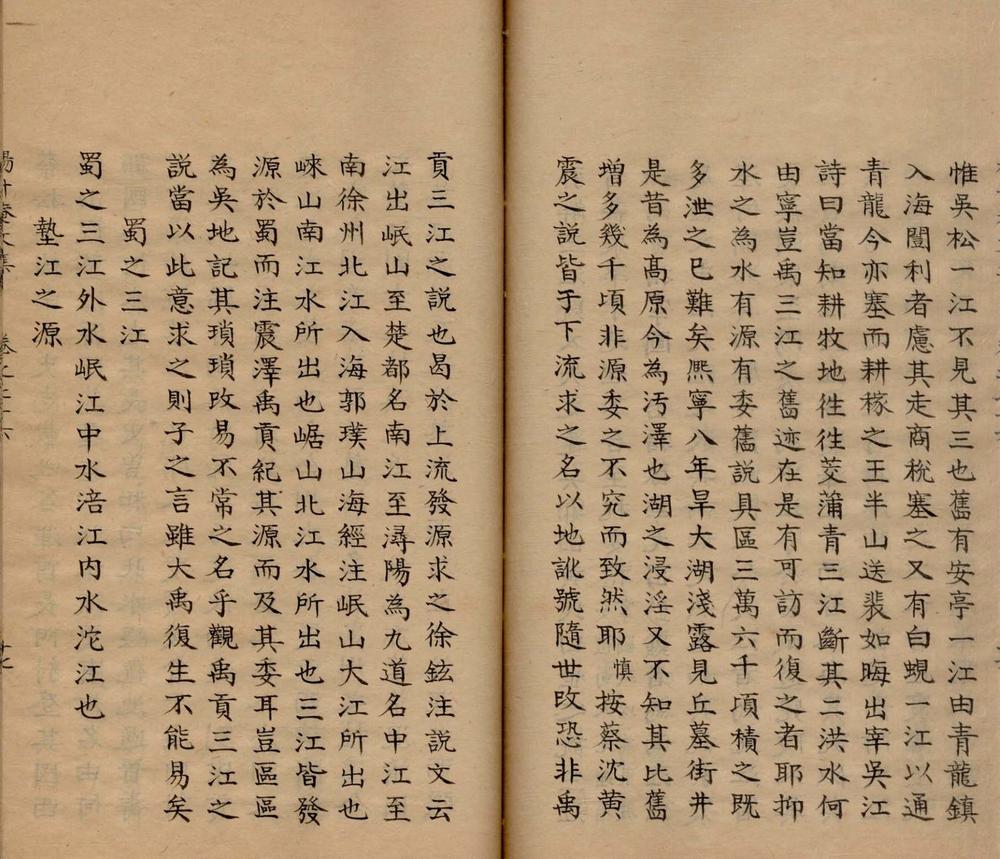 惟吳松一江不見其三也舊有安亭一江由青龍鎮
入海闓利者慮其走商稅塞之又有白蜆一江以通
青龍今亦塞而耕稼之王半山送裴如晦出宰吳江
詩曰當知耕牧地徃徃茭蒲青三江斷其二洪水何
由寧豈禹三江之舊迹在是有可訪而復之者耶抑
水之為水有源有委舊說具區三萬六千頃積之既
多泄之已難矣熈寧八年旱大湖淺露見丘墓街井
是昔為髙原今為汚澤也湖之浸淫又不知其比舊
增多幾千頃非源委之不究而致然耶慎按蔡沈黃
震之說皆于下流求之名以地訛號隨世攺恐非禹
貢三江之說也曷於上流發源求之徐鉉注說文云
江出岷山至楚都名南江至潯陽為九道名中江至
南徐州北江入海郭璞山海經注岷山大江所出也
崍山南江水所出也崌山北江水所出也三江皆發
源於蜀而注震澤禹貢紀其源而及其委耳豈區區
為吳地記其瑣瑣攺易不常之名乎觀禹貢三江之
說當以此意求之則子之言雖大禹復生不能易矣
蜀之三江
蜀之三江外水岷江中水涪江内水沱江也
墊江之源